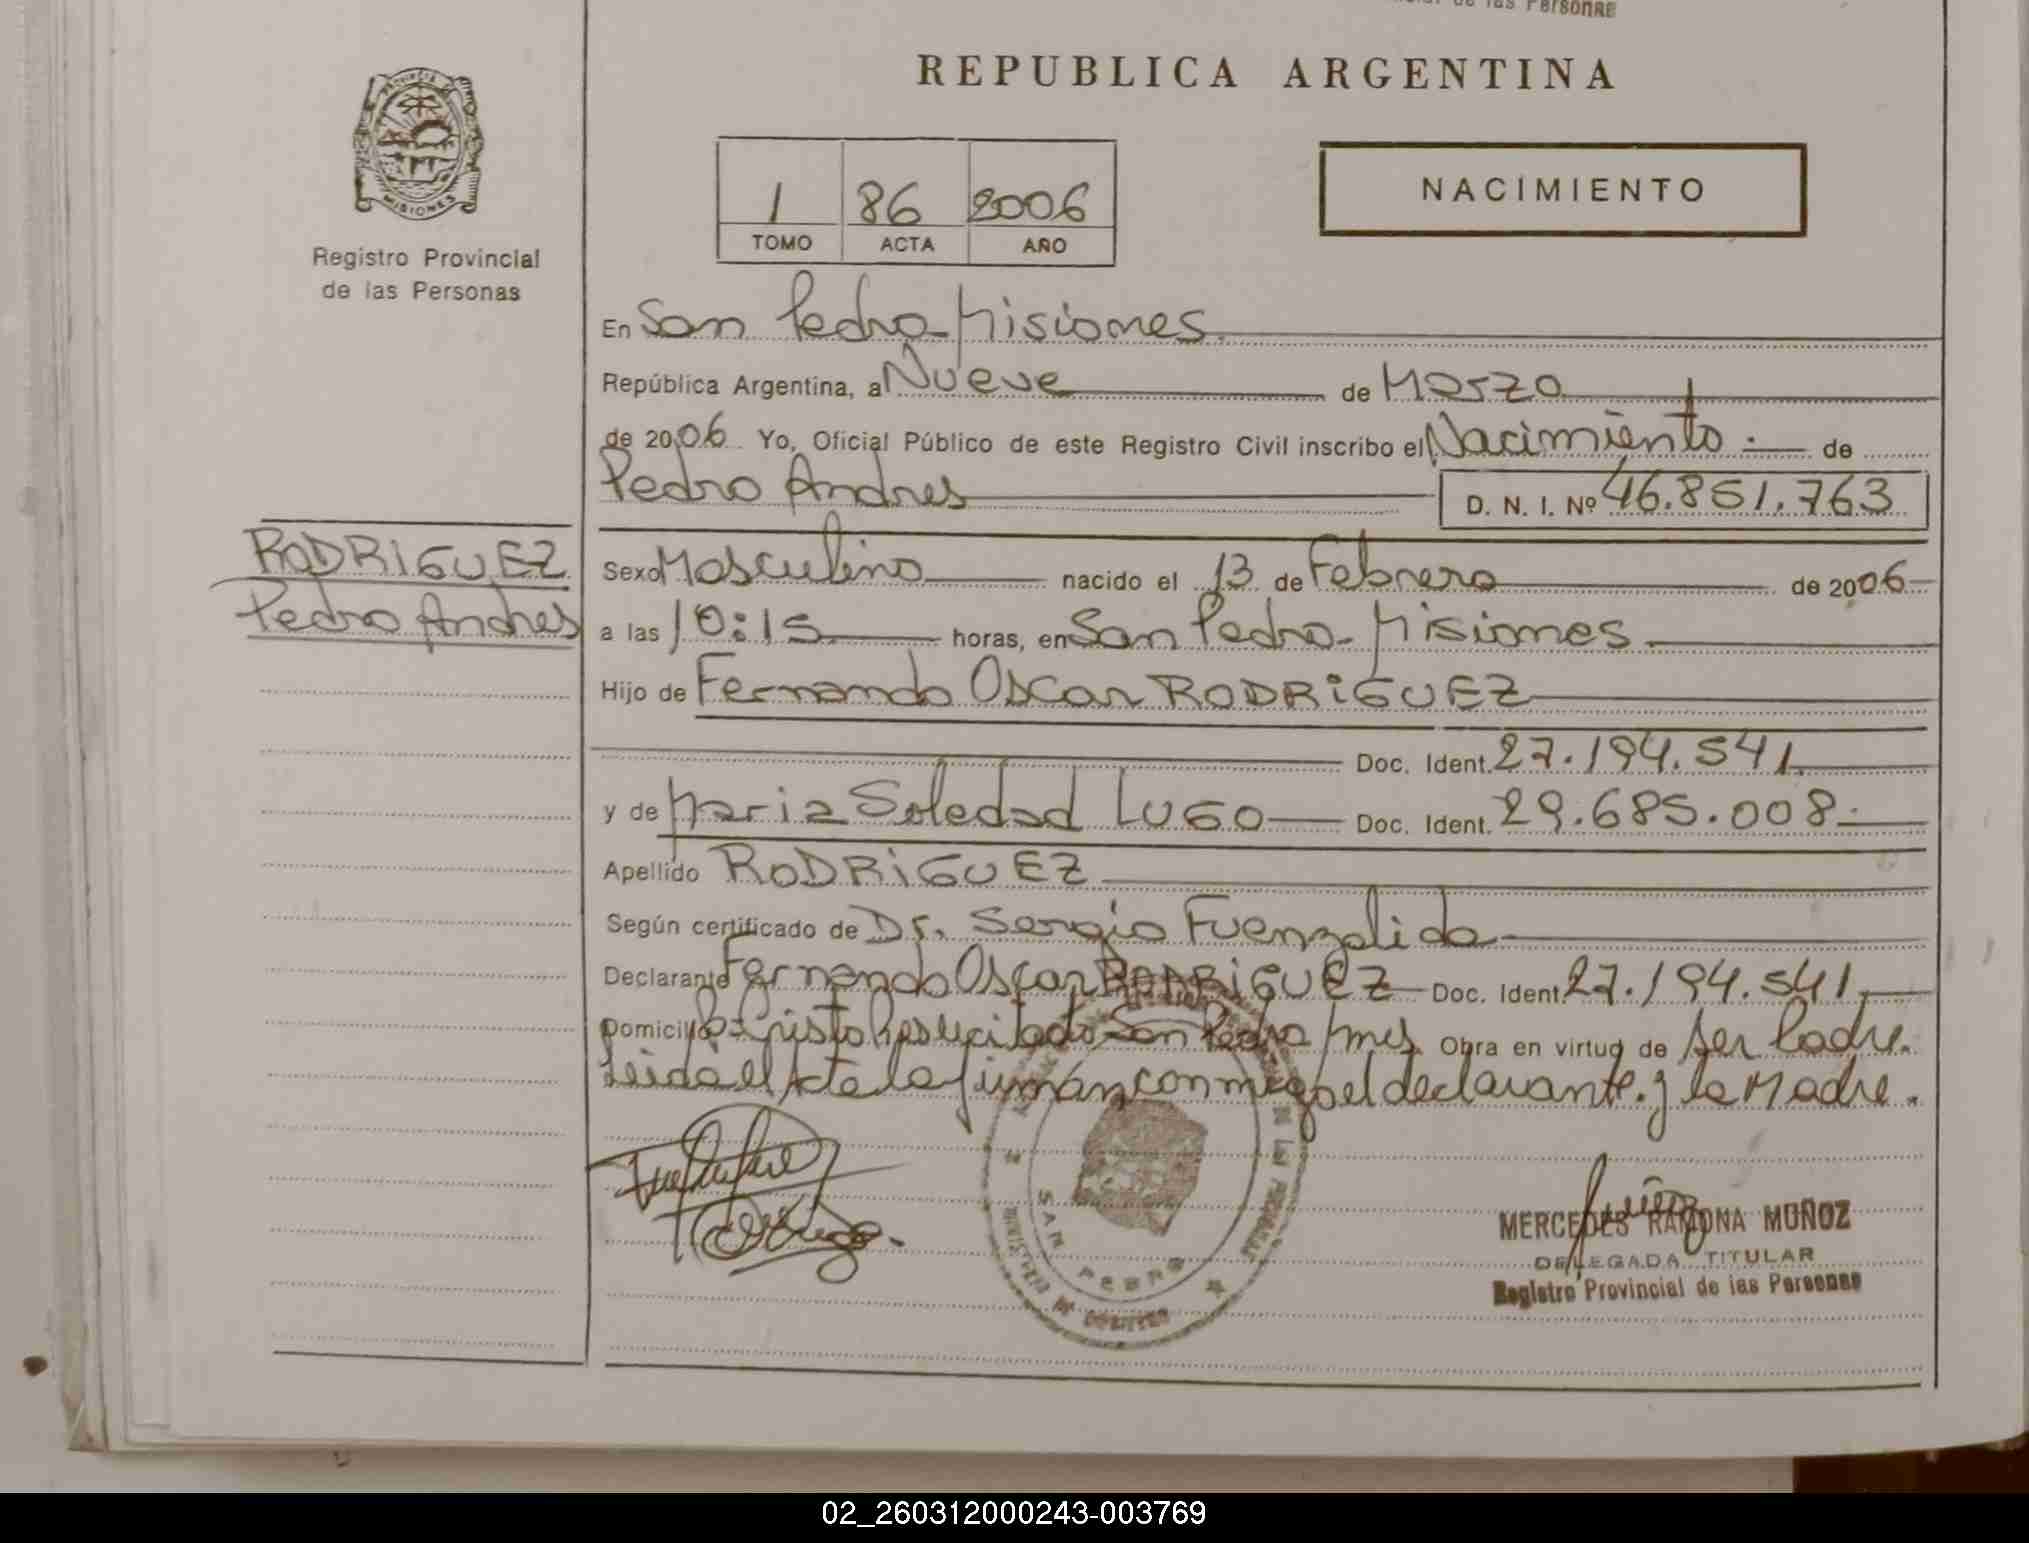 REPUBLICA ARGENTINA
PROVINCIA
MISIONES
Registro Provincial
de las Personas
1 86 2006
TOMO ACTA AÑO
NACIMIENTO
En San Pedro - Misiones.
República Argentina, a Nueve de Marzo
de 2006 Yo, Oficial Público de este Registro Civil inscribo el Nacimiento . de
Pedro Andres D. N. I. Nº 46.851.763
RODRIGUEZ
Pedro Andres
Sexo Masculino nacido el 13 de Febrero de 2006
a las 10:15 horas, en San Pedro - Misiones
Hijo de Fernando Oscar RODRIGUEZ
Doc. Ident. 27.194.541.
y de Maria Soledad LUGO Doc. Ident. 29.685.008.
Apellido RODRIGUEZ
Según certificado de Dr. Sergio Fuenzalida
Declarante Fernando Oscar RODRIGUEZ Doc. Ident. 27.194.541.
Domicilio Bº Cristo Resucitado San Pedro Mnes. Obra en virtud de ser Padre.
Leida el Acta la firman conmigo el declarante. y la Madre.
SAN PEDRO
MINISTERIO DE GOBIERNO
DE LAS PERSONAS
MERCEDES RAMONA MUÑOZ
DELEGADA TITULAR
Registro Provincial de las Personas
02_260312000243-003769